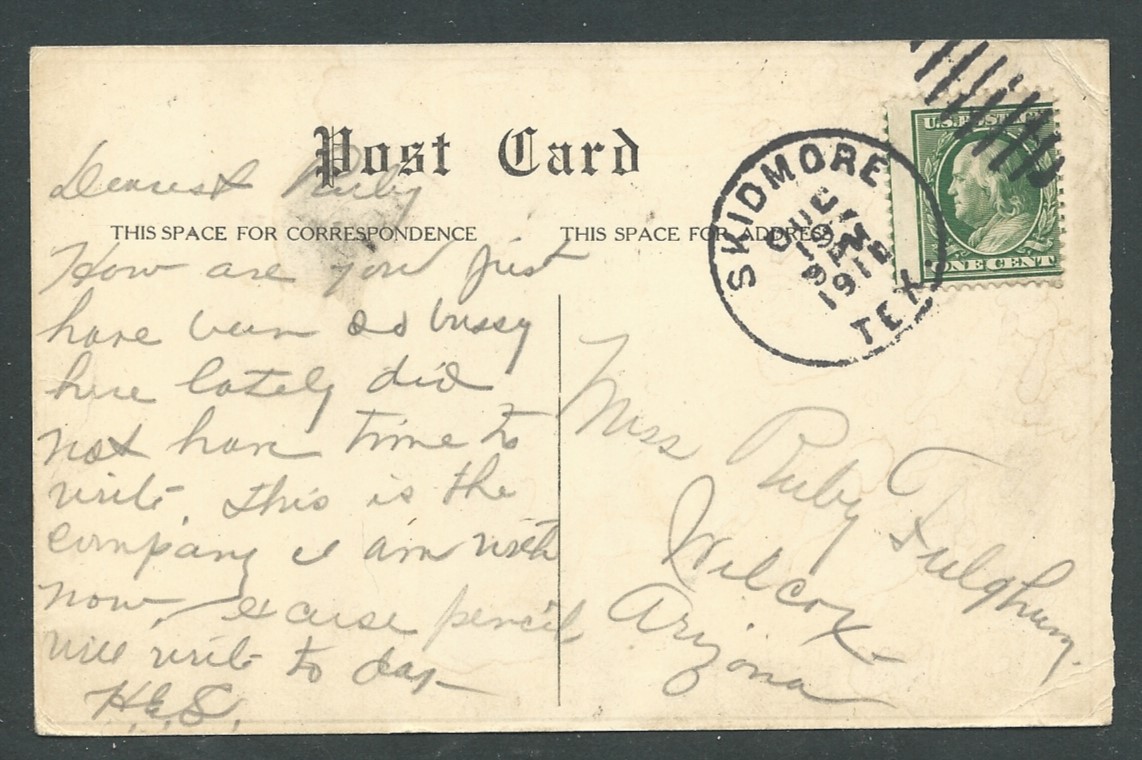 Post Card
Dearest Ruby
THIS SPACE FOR CORRESPONDENCE
How are you just
have been so bussy
here lately did
not have time to
write. this is the
company I am with
now, excuse pencil
will write to day
H.E.S.
THIS SPACE FOR ADDRESS
SKIDMORE
1912
TEX.
U.S. POSTAGE
ONE CENT
Miss Ruby Fulghum.
Wilcox
Arizona